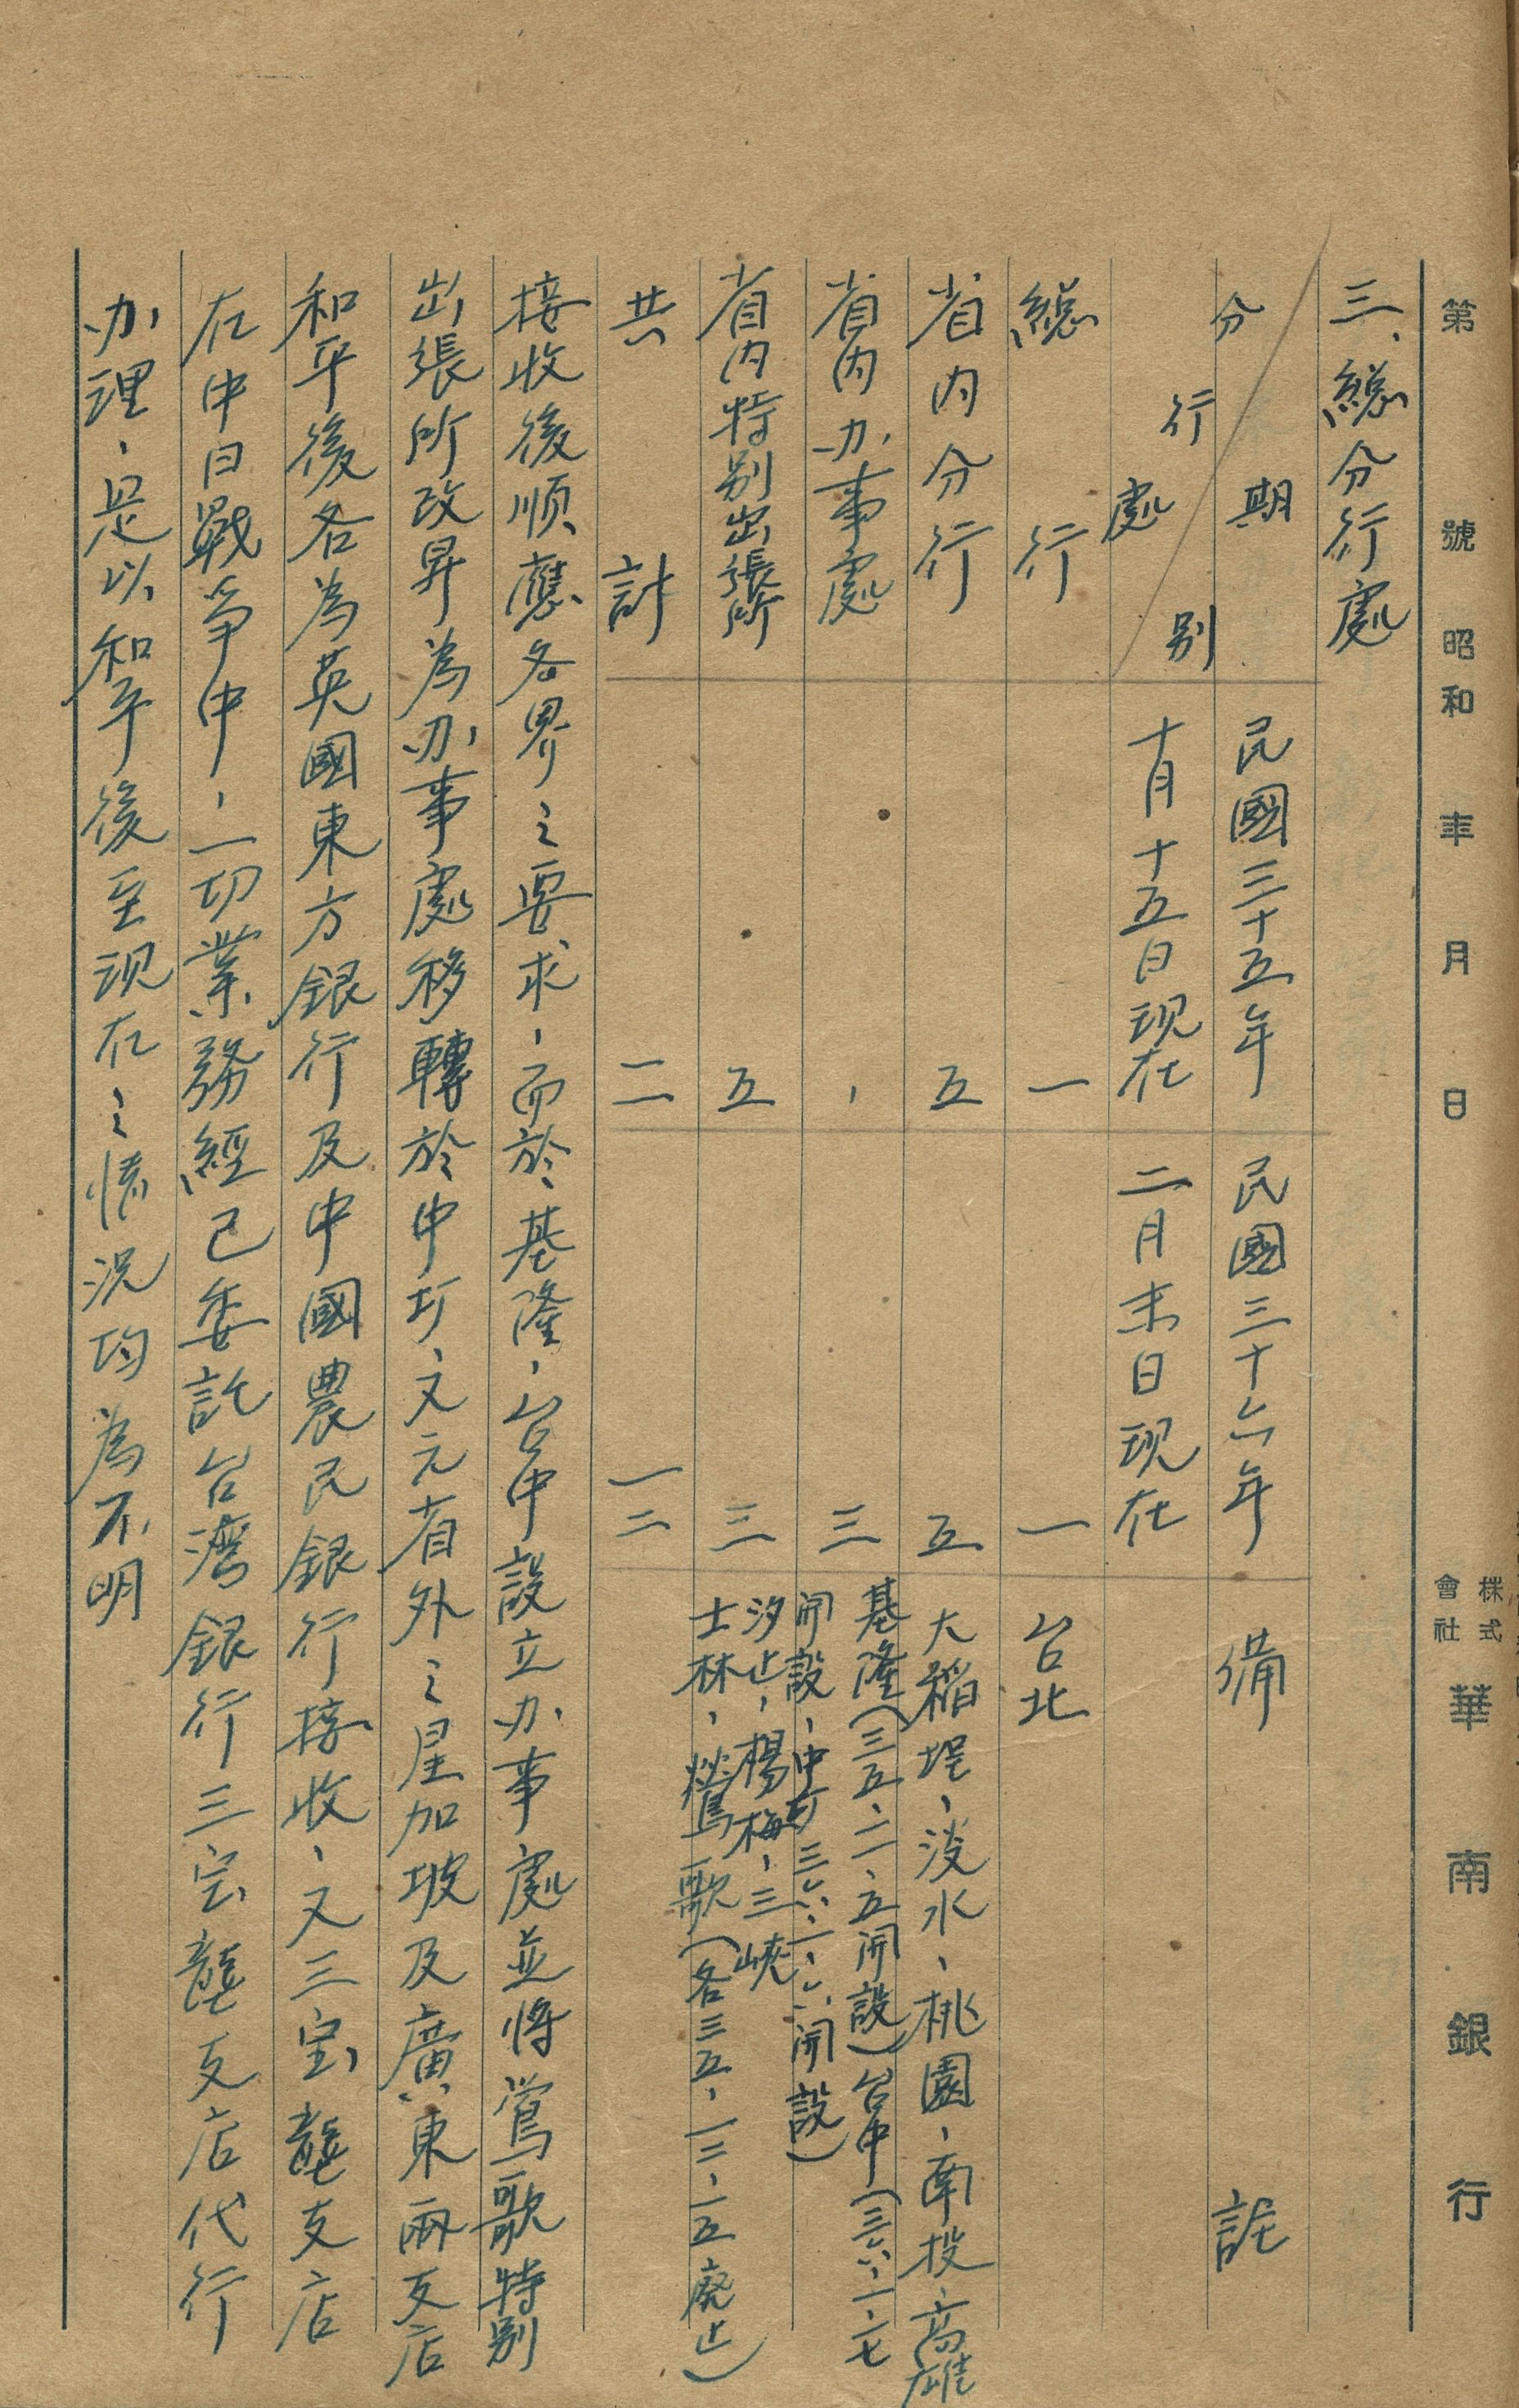 第 號 昭和 年 月 日 株式會社 華南銀行
三、總分行處
分 期 民國三十五年 民國三十六年 備 註
行處別 十月十五日現在 二月末日現在
總 行 一 一 台北
省內分行 五 五 大稻埕、淡水、桃園、南投、高雄
省內办事處 、 三 基隆（三五、一一、五開設）台中（三六、一、七
開設、中坜三六、一、六開設）
省內特别出張所 五 三 汐止、楊梅、三峽
士林、鶯歌（各三五、一二、一五廢止）
共 計 一一 一二
接收後順應各界之要求、而於基隆、台中設立办事處並將鶯歌特别
出張所改昇為办事處移轉於中坜、又元省外之星加坡及廣東兩支店
和平後各為英國東方銀行及中國農民銀行接收、又三宝壟支店
在中日戰爭中、一切業務經已委託台灣銀行三宝壟支店代行
办理、是以和平後至现在之情况均為不明